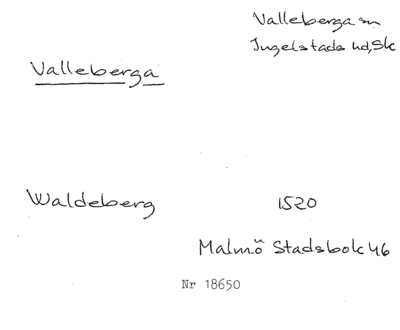 Valleberga sn
Ingelstads hd, Sk
Valleberga
Waldeberg 1520
Malmö Stadsbok 46
Nr 18650